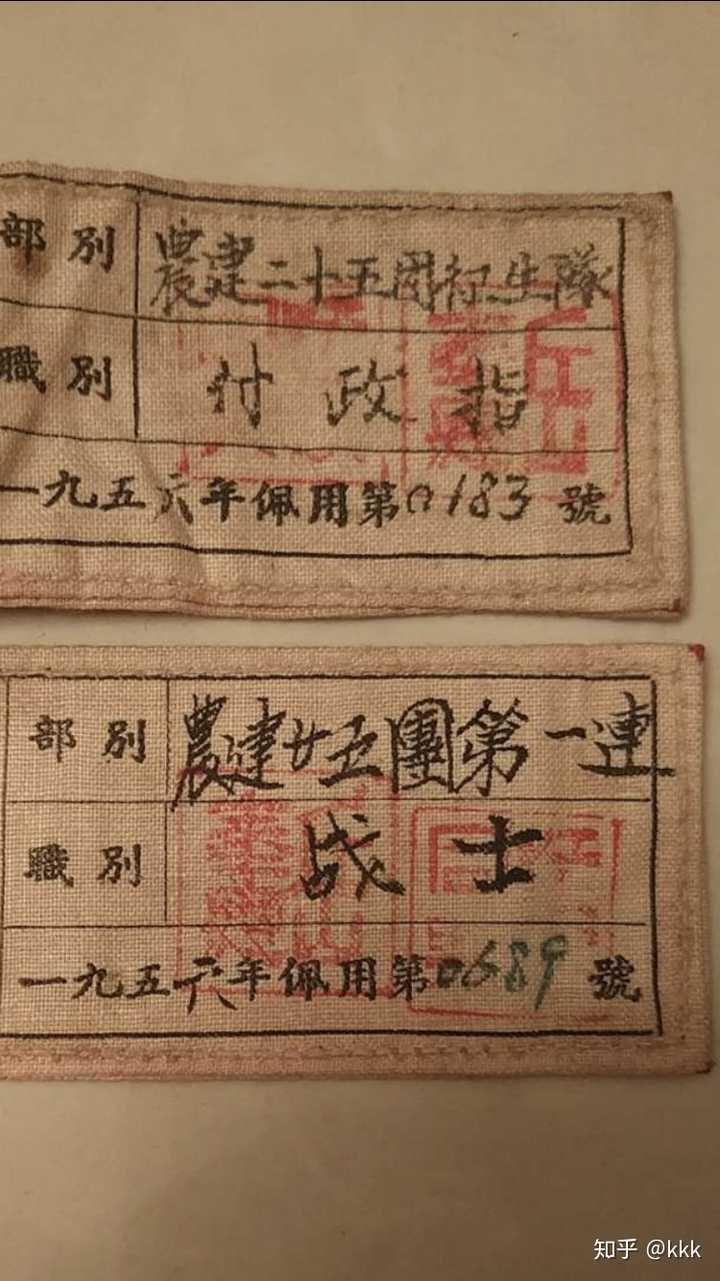 部別 農建二十五團卫生隊
職別 付政指
一九五六年佩用第0183號
部別 農建廿五團第一連
職別 战士
一九五六年佩用第0689號
知乎 @kkk